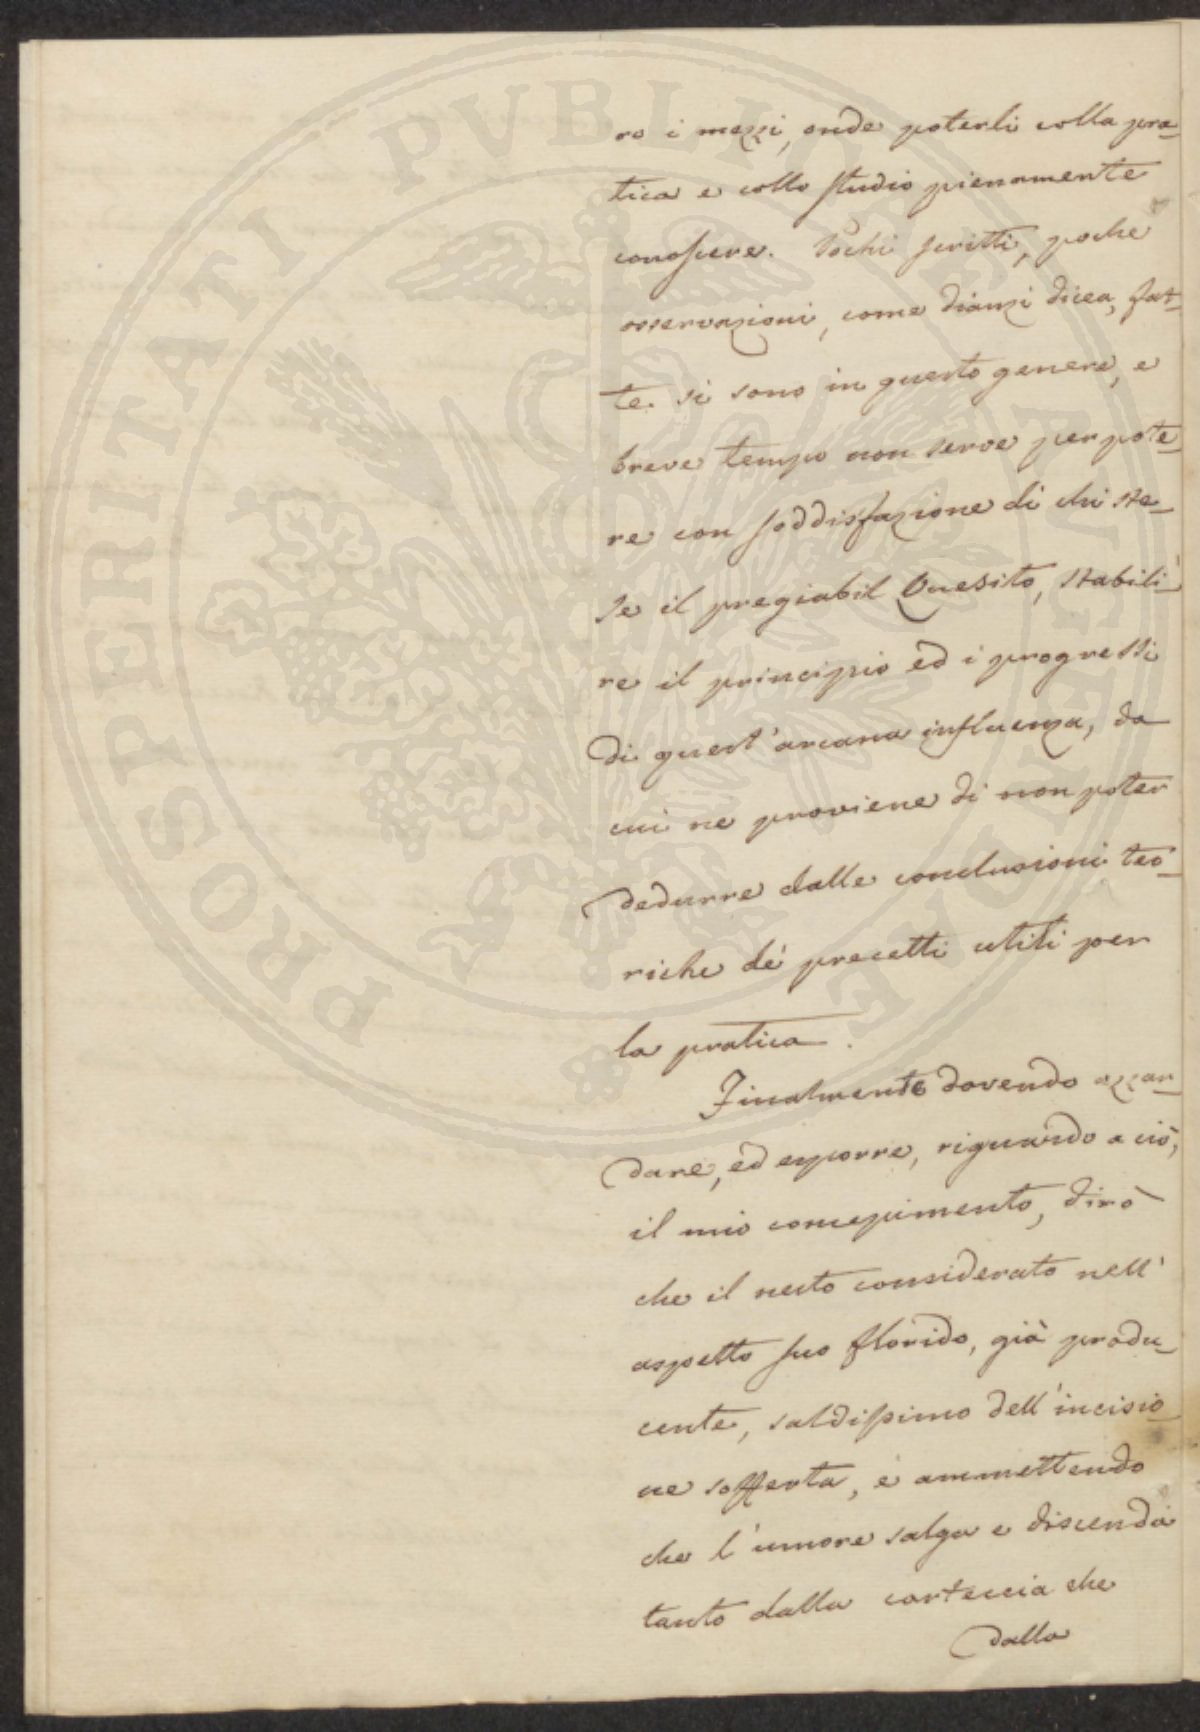 ro i mezzi, onde poterli colla pra-
tica e collo studio pienamente
conoscere. Pochi scritti, poche
osservazioni, come dianzi dicea, fat-
te si sono in questo genere, e
breve tempo non serve per pote-
re con soddisfazione di chi ste-
se il pregiabil Quesito, stabili-
re il principio ed i progressi
di quest'arcana influenza, da
cui ne proviene di non poter
dedurre dalle conclusioni teo-
riche de' precetti utili per
la pratica.
Finalmente dovendo azzar-
dare, ed esporre, riguardo a ciò,
il mio concepimento, dirò
che il nesto considerato nell'
aspetto suo florido, già produ-
cente, saldissimo dell'incisio-
ne sofferta, e ammettendo
che l'umore salga e discenda
tanto dalla corteccia che
dalla
PROSPERITATI PVBLICAE AVGENDAE